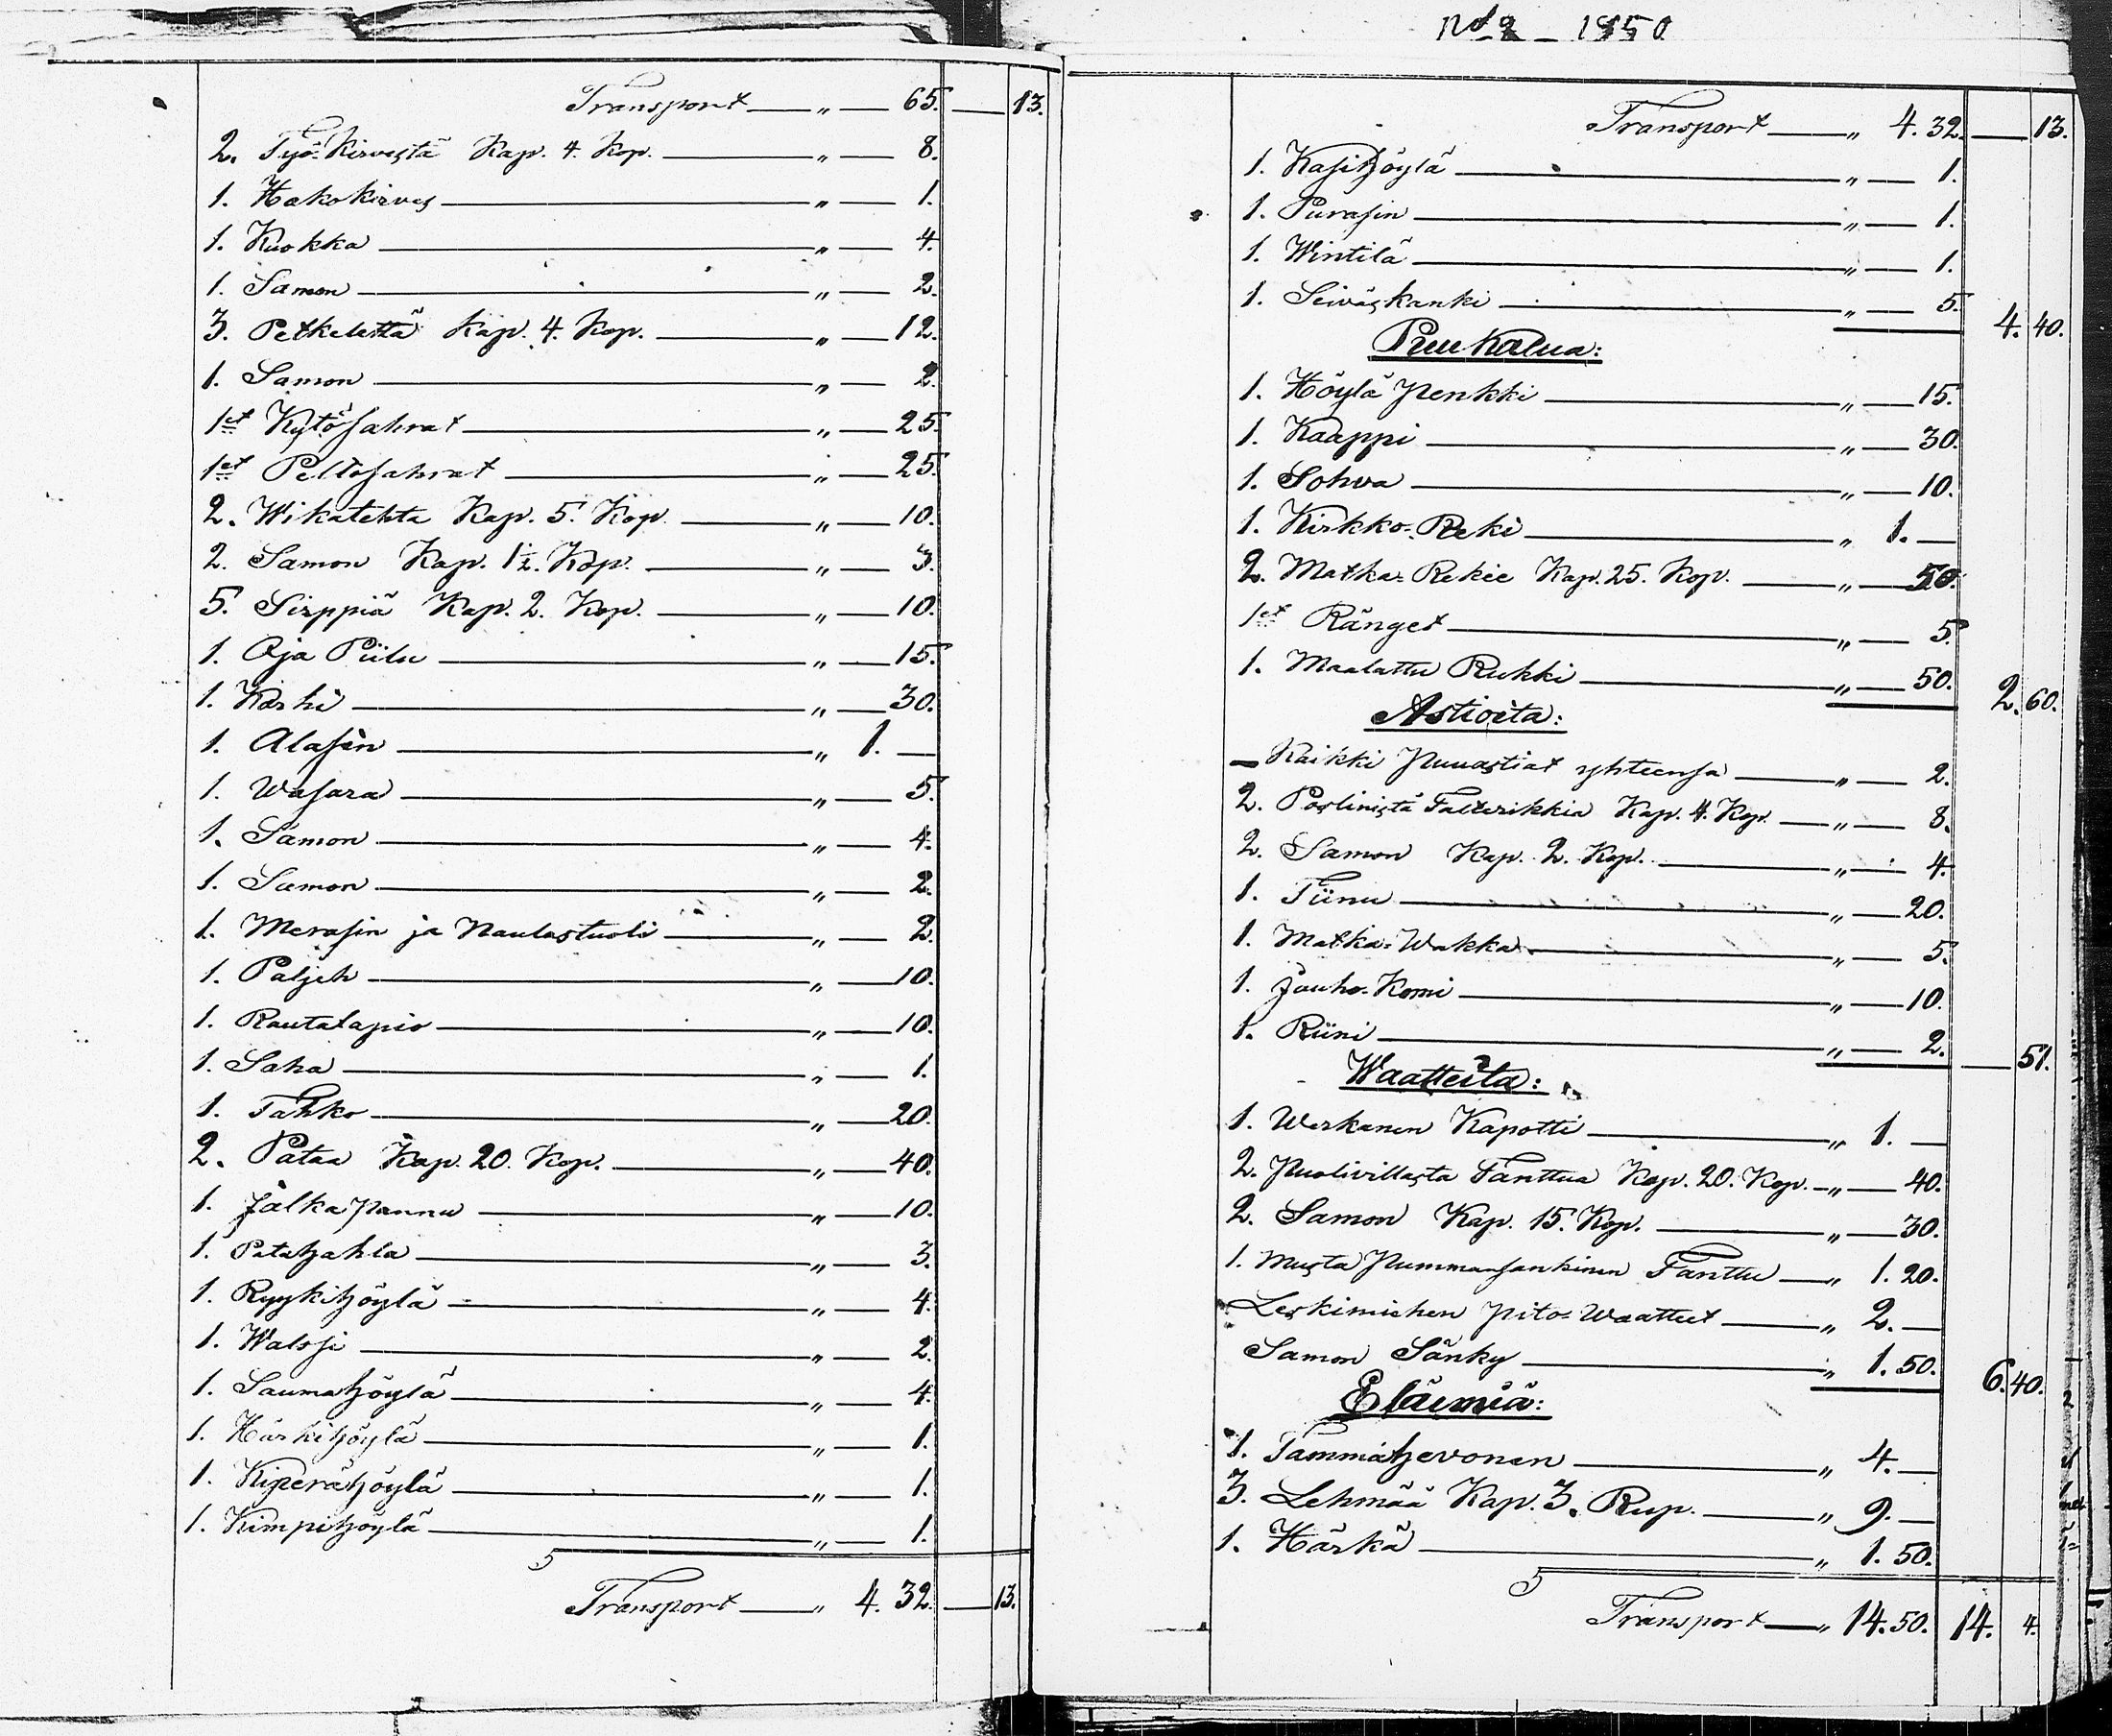 Transport — " — 65. — 13.
2. Työ-Kirvestä Kap. 4. Kop. — " — 8.
1. Hakokirves — " — 1.
1. Kuokka — " — 4.
1. Samon — " — 2.
3. Petkelettä Kap. 4. Kop. — " — 12.
1. Samon — " — 2.
1et Kytösahrat — " — 25.
1et Peltosahrat — " — 25.
2. Wikatehta Kap. 5. Kop. — " — 10.
2. Samon Kap. 1½. Kop. — " — 3.
5. Sirppiä Kap. 2. Kop. — " — 10.
1. Oja Piilu — " — 15.
1. Karhi — " — 30.
1. Alasin — " 1. —
1. Wasara — " — 5.
1. Samon — " — 4.
1. Samon — " — 2.
1. Merasin ja Naulastuoli — " — 2.
1. Paljeh — " — 10.
1. Rautalapio — " — 10.
1. Saha — " — 1.
1. Tahko — " — 20.
2. Pataa Kap. 20. Kop. — " — 40.
1. Jalka pannu — " — 10.
1. Patahahla — " — 3.
1. Ryykihöylä — " — 4.
1. Walssi — " — 2.
1. Saumahöylä — " — 4.
1. Härkihöylä — " — 1.
1. Kiperähöylä — " — 1.
1. Kimpihöylä — " — 1.
Transport — " 4. 32. — 13.
No 2 — 1850
Transport — " 4. 32. — 13.
1. Kasihöylä — " — 1.
1. Purasin — " — 1.
1. Wintilä — " — 1.
1. Seiväskanki — " — 5. 4. 40.
Puukalua:
1. Höylä penkki — " — 15.
1. Kaappi — " — 30.
1. Sohva — " — 10.
1. Kirkko-Reki — " 1. —
2. Matka-Rekie Kap. 25. Kop. — " — 50.
1et Ränget — " — 5.
1. Maalattu Rukki — " — 50. 2. 60.
Astioita:
— Kaikki puuastiat yhteensä — " — 2.
2. Poslinista Falterikkia Kap. 4. Kop. — " — 8.
2. Samon Kap. 2. Kop. — " — 4.
1. Tiinu — " — 20.
1. Matka-Wakka — " — 5.
1. Jauho-Komi — " — 10.
1. Riini — " — 2. — 51.
Waatteita:
1. Werkanen Kapotti — " 1. —
2. Puolivillasta Tanttua Kap. 20. Kop. — " — 40.
2. Samon Kap. 15. Kop. — " — 30.
1. Musta Tanttu — " 1. 20.
Leskimiehen pito-Waatteet — " 2. —
Samon Sänky — " 1. 50. 6. 40.
Eläimiä:
1. Tammahevonen — " 4. —
3. Lehmää Kap. 3. Rup. — " 9. —
1. Härkä — " 1. 50.
Transport — " 14. 50. 14. 4.